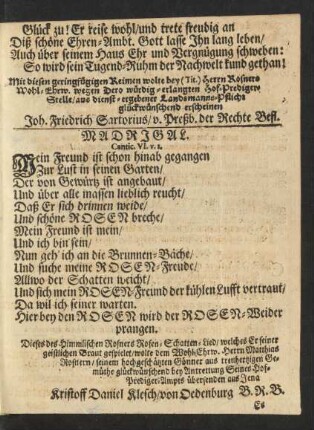 Glück zu! Er reise wohl/und trete freudig an
Diß schöne Ehren-Ambt. Gott lasse Ihn lang leben/
Auch über seinem Haus Ehr und Vergnügung schweben:
So wird sein Tugend-Ruhm der Nachwelt kund gethan!
Mit diesen geringfügigen Reimen wolte bey (Tit.) Herrn Rosners
Wohl-Ehrw. wegen Dero würdig-erlangten Hof-Prediger-
Stelle/aus dienst-ergebener Landsmanns-Pflicht
glückwünschend erscheinen
Joh. Friedrich Sartorius/v. Preßb. der Rechte Befl.
MADRIGAL.
Cantic. VI. v. 2.
Mein Freund ist schon hinab gegangen
Zur Lust in seinen Garten/
Der von Gewürtz ist angebaut/
Und über alle massen lieblich reucht/
Daß Er sich drinnen weide/
Und schöne ROSEN breche/
Mein Freund ist mein/
Und ich bin sein/
Nun geh' ich an die Brunnen-Bäche/
Und suche meine ROSEN-Freude/
Allwo der Schatten weicht/
Und sich mein ROSEN-Freund der kühlen Lufft vertraut/
Da wil ich seiner warten.
Hier bey den ROSEN wird der ROSEN-Weider
prangen.
Dieses des Himmlischen Rosners Rosen-Schatten-Lied/welches Er seiner
geistlichen Braut gespielet/wolte dem Wohl-Ehrw. Herrn Matthias
Rosnern/seinem hochgeschätzten Gönner aus treuhertzigen Ge-
müthe glückwünschend bey Antrettung Seines Hof-
Prediger-Ampts übersenden aus Jena
Kristoff Daniel Klesch/von Oedenburg B.R.B.
Es